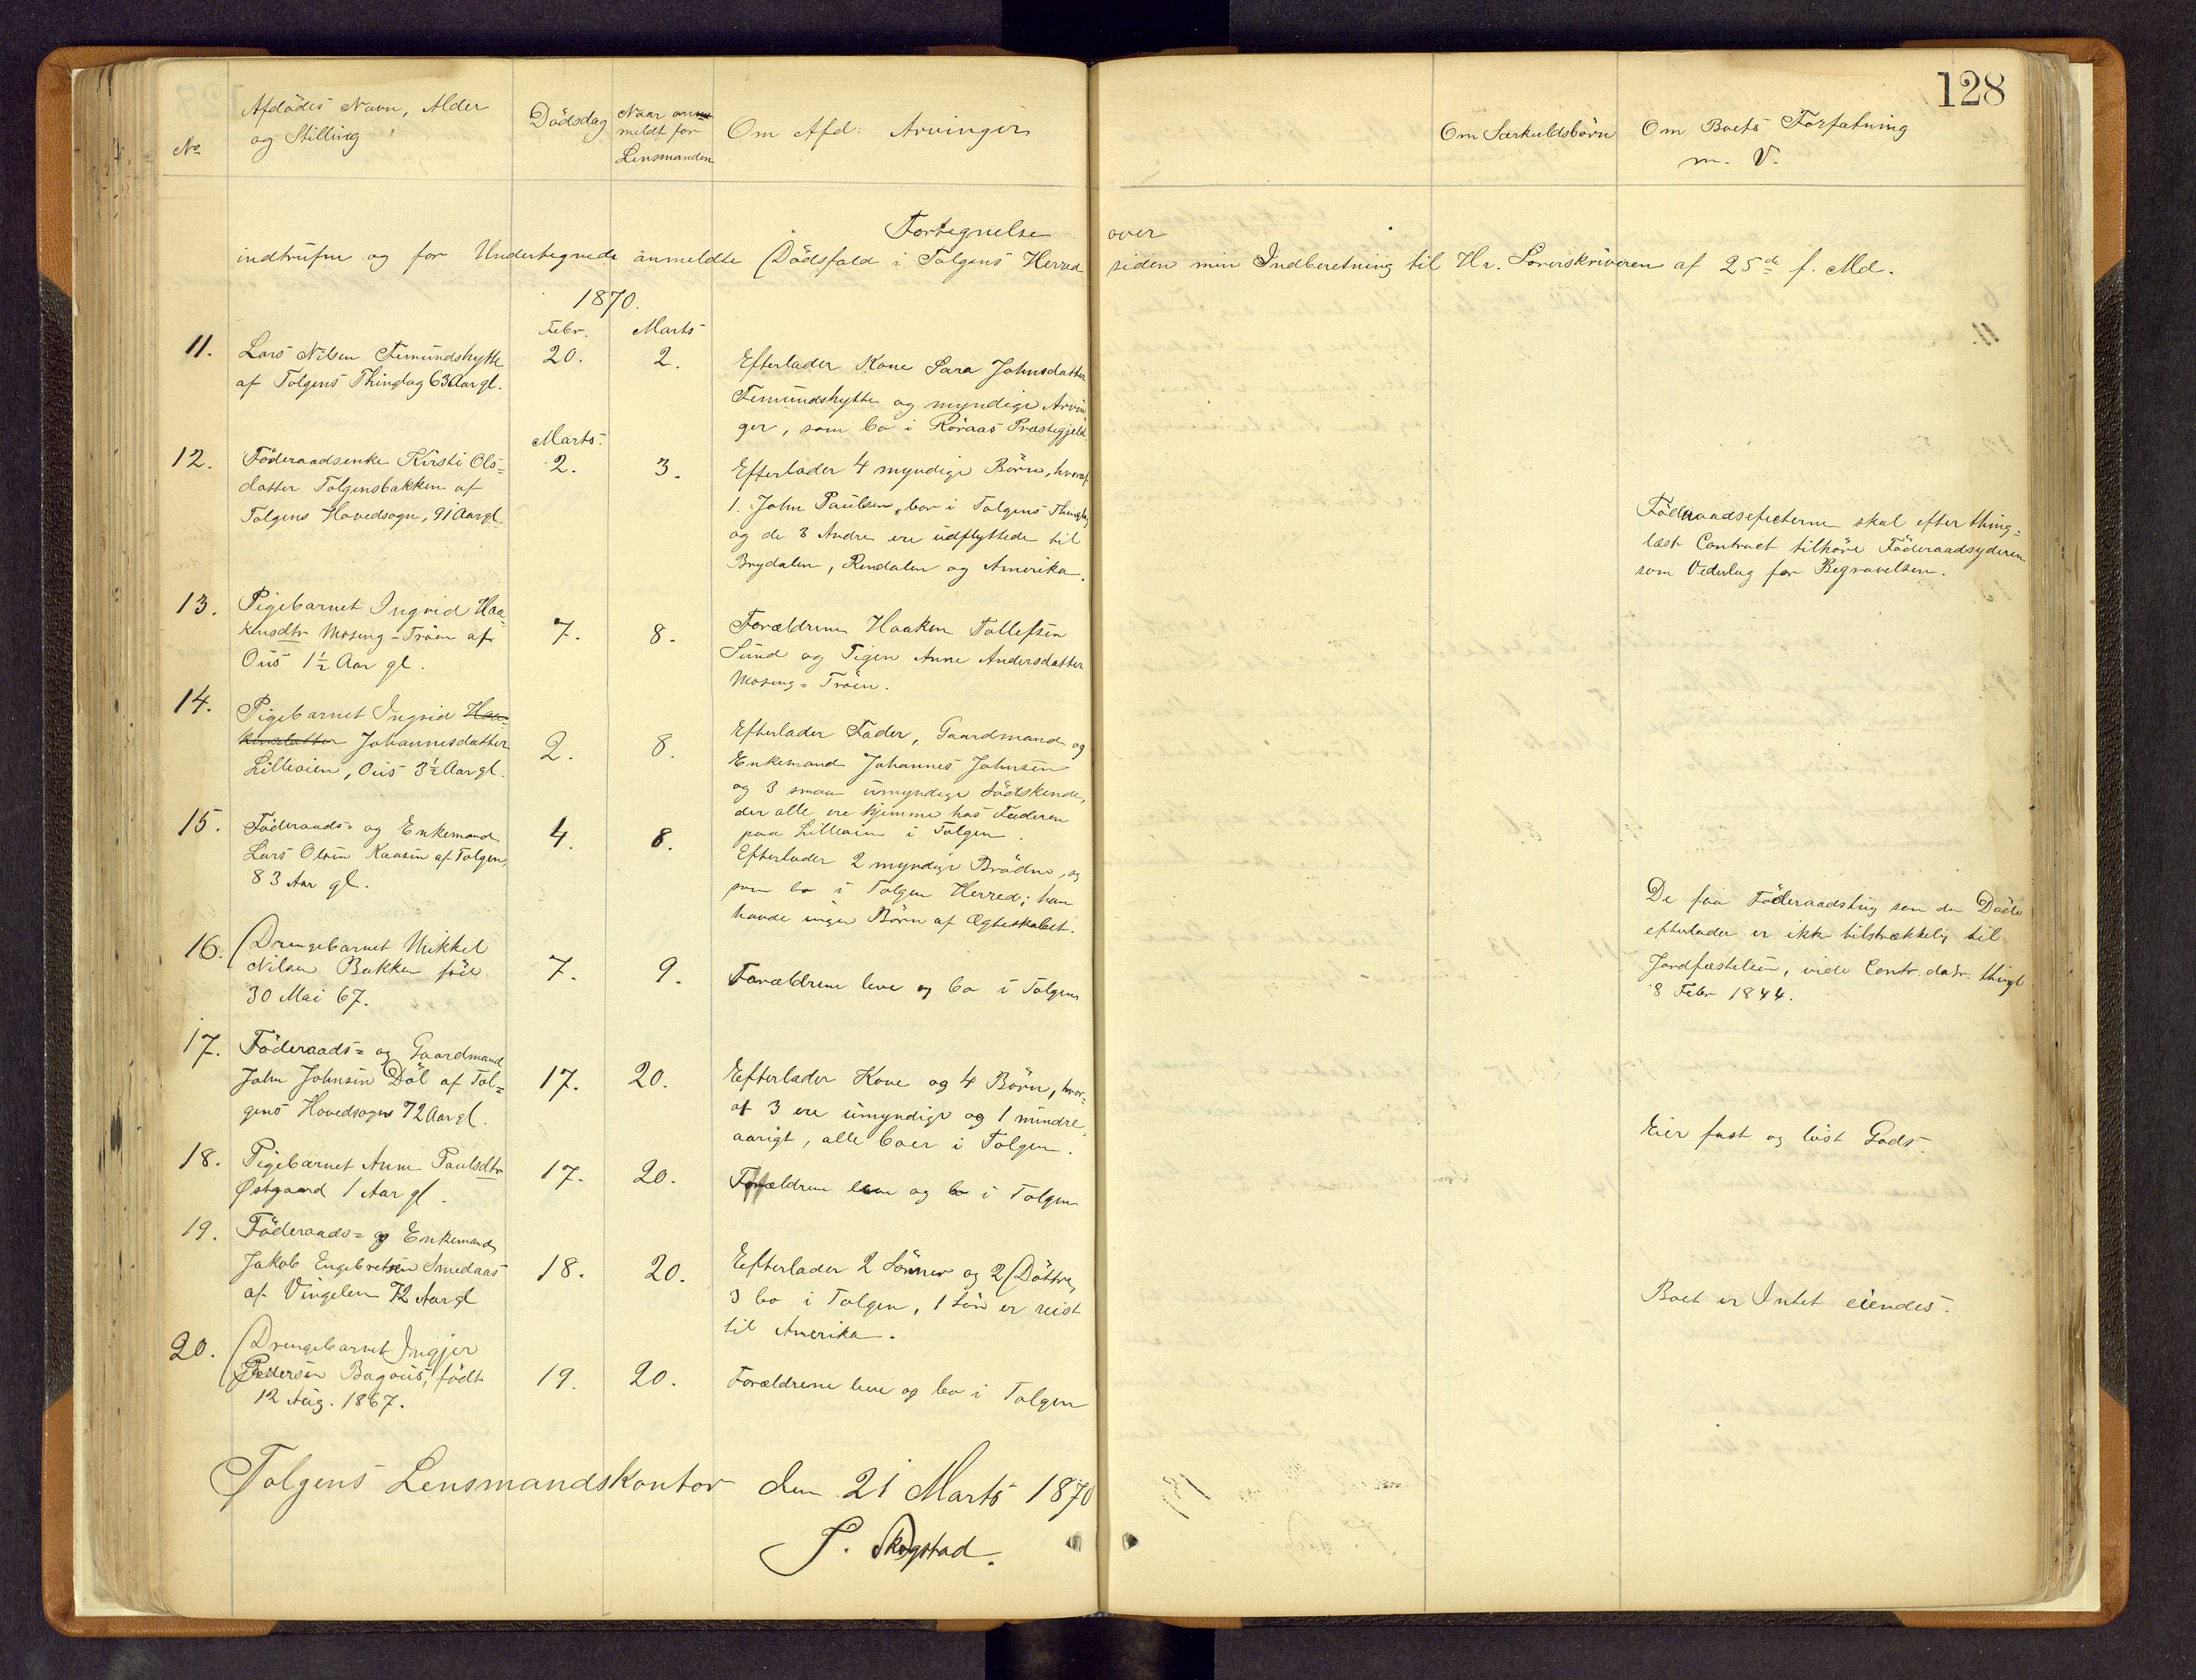 128
No
Afdödes Navn, Alder
og Stilling
Dödsdag
Naar an
meldt for
Lensmanden
Om Afd: Arvinger
Om Særkuldsbörn
Om Boets Forfatning
m. V.
Fortegnelse over
indtrufne og for Undertegnede anmeldte Dödsfald i Tolgens Herred siden min Indberetning til Hr. Sorenskriveren af 25de f. Md.
1870.
Febr. Marts
11. Lars Nilsen Femundshytte 20. 2. Efterlader Kone Sara Johnsdatter
af Tolgens Thinglag 63 Aar gl. Femundshytte og myndige Arvin
ger, som bo i Röraas Præstegjeld.
Marts.
12. Föderaadsenke Kirsti Ols-
datter Tolgensbakken af
Tolgens Hovedsogn, 91 Aar gl.
2. 3.
Efterlader 4 myndige Börn, hvoraf
1. John Paulsen, bor i Tolgens Thinglag
og de 3 Andre ere udflyttede til
Brydalen, Rendalen og Amerika.
Föderaadsefecterne skal efter thing-
læst Contract tilhöre Föderaadsyderen
som Vederlag for Begravelsen.
13. Pigebarnet Ingrid Haa
kensdtr Moseng-Tröen af
Ous 1½ Aar gl.
7. 8.
Forældrene Haaken Tollefsen
Sund og Pigen Anne Andersdatter
Moseng-Tröen.
14. Pigebarnet Ingrid Haa-
kensdatter Johannesdatter
Lilleoien, Ous 3½ Aar gl.
2. 8.
Efterlader Fader, Gaardmand og
Enkemand Johannes Johnsen
og 3 smaa umyndige Södskende,
der alle ere hjemme hos Faderen
paa Lilleoien i Tolgen.
15. Föderaads- og Enkemand
Lars Olsen Kaasen af Tolgen,
83 Aar gl.
4. 8.
Efterlader 2 myndige Brödre, og
som bo i Tolgen Herred; han
havde ingen Börn af Ægteskabet.
De faa Föderaadsting som den Döde
efterlader er ikke tilstrækkelig til
Jordfæstelsen, vide Contr. datr. thingl
8 Febr 1844.
16. Drengebarnet Mikkel
Nilsen Bakken föd
30 Mai 67.
7. 9.
Forældrene leve og bo i Tolgen
17. Föderaads- og Gaardmand
John Johnsen Döl af Tol-
gens Hovedsogn 72 Aar gl.
17. 20.
Efterlader Kone og 4 Börn, hvor-
af 3 ere umyndige og 1 mindre-
aarigt, alle boer i Tolgen.
Eier fast og löst Gods.
18. Pigebarnet Anne Paulsdtr
Østgaard 1 Aar gl.
17. 20.
Forældrene leve og bo i Tolgen
19. Föderaads- og Enkemand
Jakob Engebretsen Smedaas
af Vingelen 72 Aar gl
18. 20.
Efterlader 2 Sönner og 2 Döttre,
3 bo i Tolgen, 1 Sön er reist
til Amerika.
Boet er Intet eiendes.
20. Drengebarnet Ingjer
Pedersen Bagöus, födt
12 Aug. 1867.
19. 20.
Forældrene leve og bo i Tolgen
Tolgens Lensmandskontor den 21 Marts 1870
Skogstad.